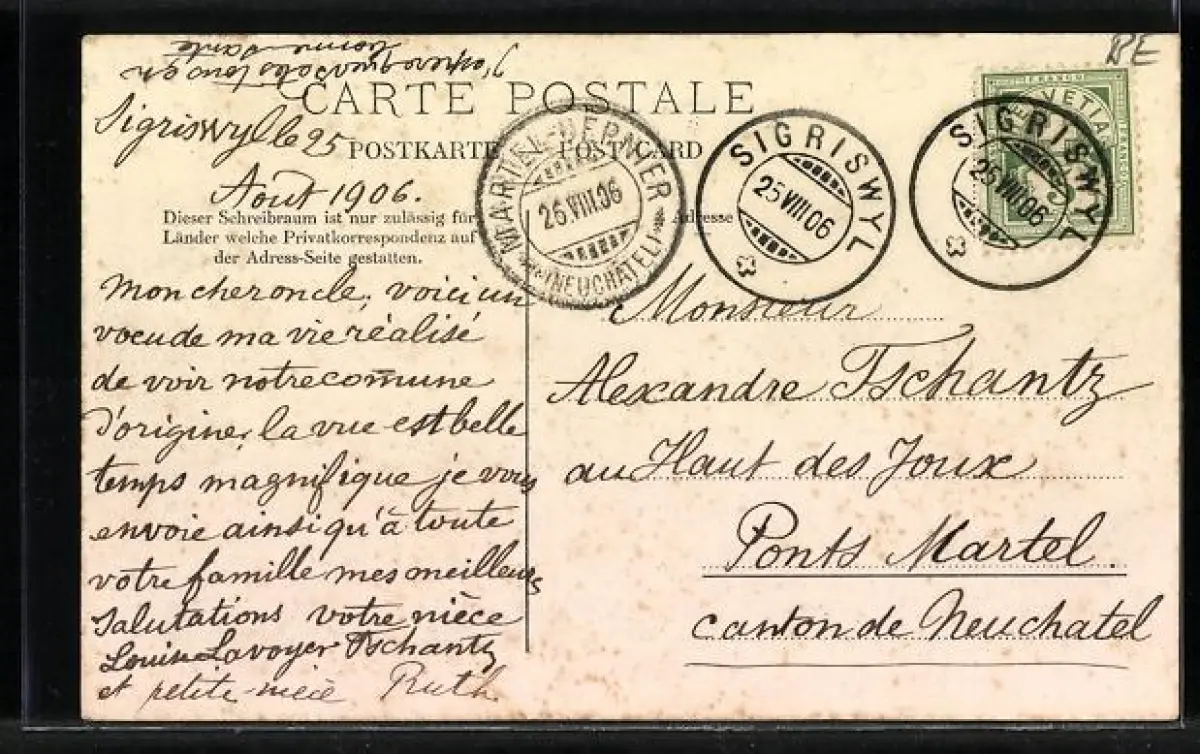 bonne
CARTE POSTALE
Sigriswyl le 25
Août 1906.
POSTKARTE POST CARD
Dieser Schreibraum ist nur zulässig für
Länder welche Privatkorrespondenz auf
der Adress-Seite gestatten.
Adresse
MARTEL-DERNIER
26.VIII.06
(NEUCHATEL)
SIGRISWYL
25.VIII.06
SIGRISWYL
25.VIII.06
FRANCO
HELVETIA
Mon cher oncle, voici un
voeu de ma vie réalisé
de voir notre comune
d'origine, la vue est belle
temps magnifique je vous
envoie ainsi qu'à toute
votre famille mes meilleurs
salutations votre nièce
Louise Lavoyer Tschantz
et petite-nièce Ruth
Monsieur
Alexandre Tschantz
au Haut des Joux
Ponts Martel.
canton de Neuchatel